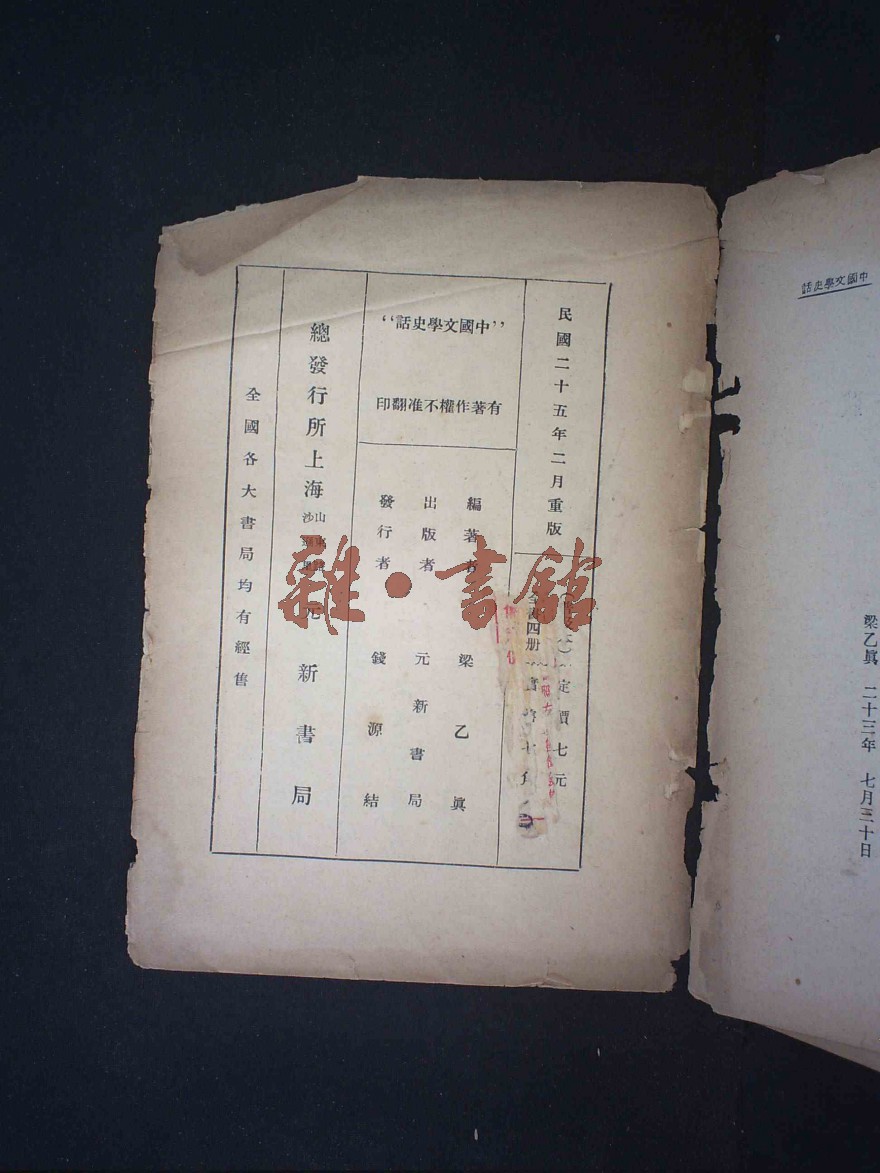 中國文學史話
梁乙眞 二十三年 七月三十日
民國二十五年二月重版
定價七元
全書四册
“中國文學史話”
有著作權不准翻印
編著者 梁乙眞
出版者 元新書局
發行者 錢源結
總發行所上海
山東路
沙遜里
元新書局
全國各大書局均有經售
雜·書館